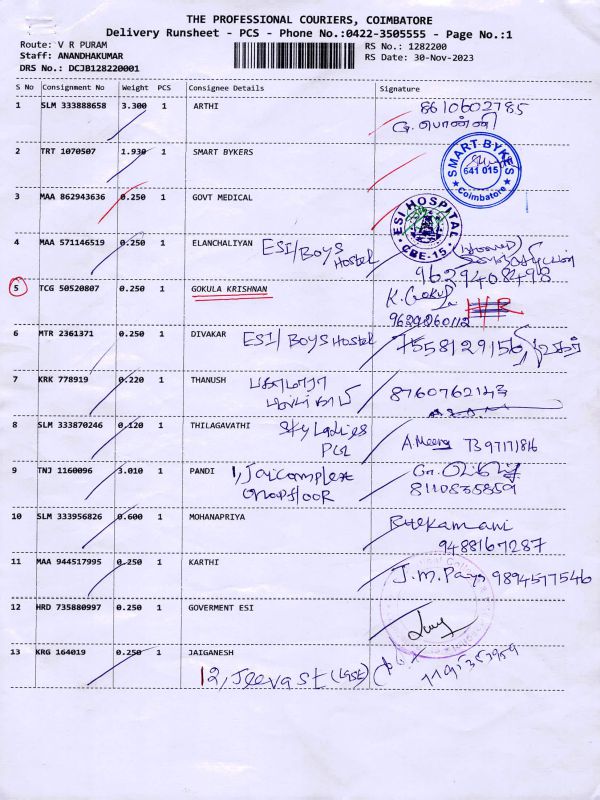 THE PROFESSIONAL COURIERS, COIMBATORE
Delivery Runsheet - PCS - Phone No.:0422-3505555 - Page No.:1
Route: V R PURAM
Staff: ANANDHAKUMAR
DRS No.: DCJB128220001
RS No.: 1282200
RS Date: 30-Nov-2023
S No Consignment No Weight PCS Consignee Details Signature
1 SLM 333888658 3.300 1 ARTHI 8610602785
பொன்னி
2 TRT 1070507 1.930 1 SMART BYKERS
SMART BYKES
641 015
Coimbatore
3 MAA 862943636 0.250 1 GOVT MEDICAL
ESI HOSPITAL
CBE-15
4 MAA 571146519 0.250 1 ELANCHALIYAN ESI/BOYS Hostel
9629408498
5 TCG 50520807 0.250 1 GOKULA KRISHNAN K. Gokul
9629260112
6 MTR 2361371 0.250 1 DIVAKAR ESI/BOYS Hostel 7558129156
7 KRK 778919 0.220 1 THANUSH
8 SLM 333870246 0.120 1 THILAGAVATHI Sky Ladies PG A Meena
9 TNJ 1160096 3.010 1 PANDI 1, Jai complex
8110835859
10 SLM 333956826 0.600 1 MOHANAPRIYA Rukamani
9488167287
11 MAA 944517995 0.250 1 KARTHI 9894577546
12 HRD 735880997 0.250 1 GOVERMENT ESI
13 KRG 164019 0.250 1 JAIGANESH
12, Jeeva St (Last)